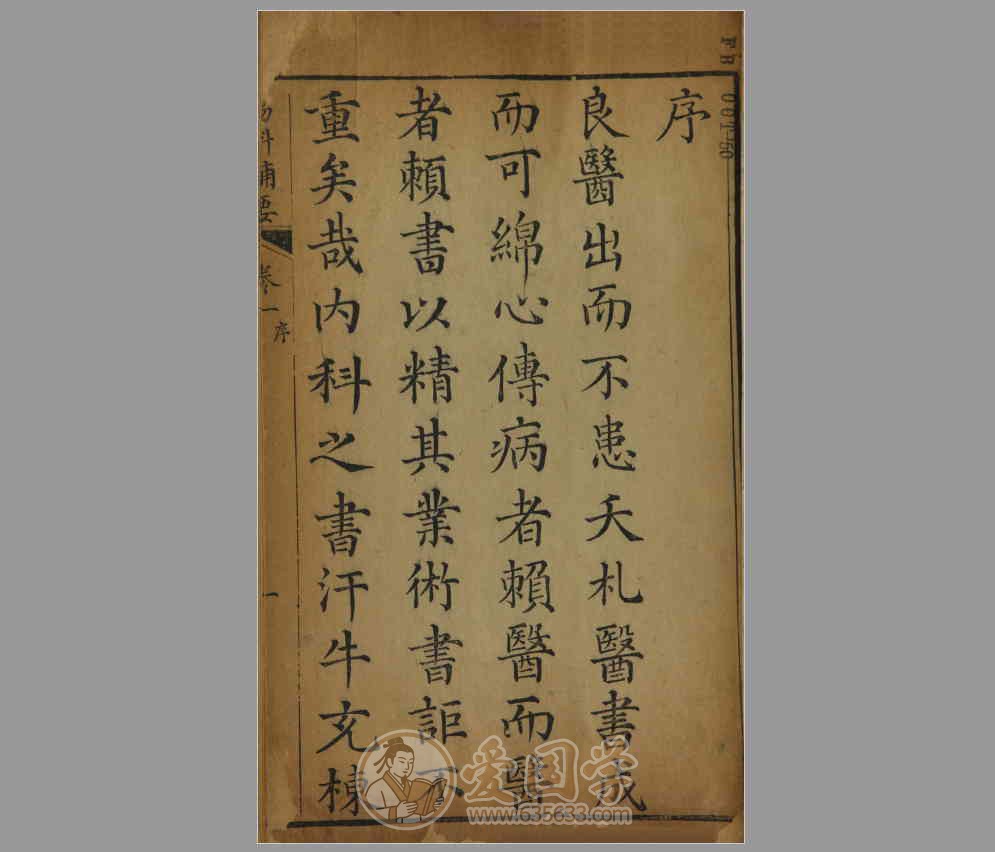 序
良醫出而不患夭札醫書成
而可綿心傳病者賴醫而醫
者賴書以精其業術書詎不
重矣哉内科之書汗牛充棟
卷一
序
一
爱国学
www.635633.com